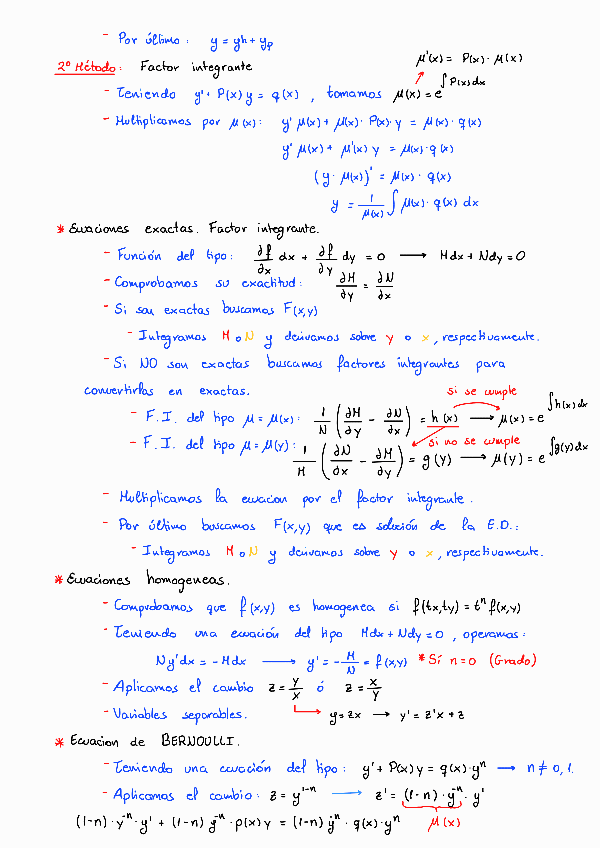 - Por último: y = yh + yp
μ'(x) = P(x)·μ(x)
2º Método: Factor integrante
- Teniendo y' + P(x)y = q(x), tomamos μ(x) = e^∫P(x)dx
- Multiplicamos por μ(x): y'μ(x) + μ(x)·P(x)·y = μ(x)·q(x)
y'μ(x) + μ'(x)y = μ(x)·q(x)
(y·μ(x))' = μ(x)·q(x)
y = 1/μ(x) ∫ μ(x)·q(x) dx
* Ecuaciones exactas. Factor integrante.
- Función del tipo: ∂f/∂x dx + ∂f/∂y dy = 0 → Mdx + Ndy = 0
- Comprobamos su exactitud: ∂M/∂y = ∂N/∂x
- Si son exactas buscamos F(x,y)
- Integramos M o N y derivamos sobre y o x, respectivamente.
- Si NO son exactas buscamos factores integrantes para
convertirlas en exactas.
si se cumple
- F.I. del tipo μ = μ(x): 1/N (∂M/∂y - ∂N/∂x) = h(x) → μ(x) = e^∫h(x)dx
si no se cumple
- F.I. del tipo μ = μ(y): 1/M (∂N/∂x - ∂M/∂y) = g(y) → μ(y) = e^∫g(y)dx
- Multiplicamos la ecuacion por el factor integrante.
- Por último buscamos F(x,y) que es solución de la E.D.:
- Integramos M o N y derivamos sobre y o x, respectivamente.
* Ecuaciones homogeneas.
- Comprobamos que f(x,y) es homogenea si f(tx,ty) = tⁿf(x,y)
- Teniendo una ecuación del tipo Mdx + Ndy = 0, operamos:
Ny'dx = -Mdx → y' = -M/N = f(x,y) * Sí n=0 (Grado)
- Aplicamos el cambio z = y/x ó z = x/y
- Variables separables. → y = zx → y' = z'x + z
* Ecuacion de BERNOULLI.
- Teniendo una ecuación del tipo: y' + P(x)y = q(x)·yⁿ → n ≠ 0, 1.
- Aplicamos el cambio: z = y^1-n → z' = (1-n)·y^-n·y'
(1-n)·y^-n·y' + (1-n)y^-n·p(x)y = (1-n)y^-n·q(x)·yⁿ μ(x)